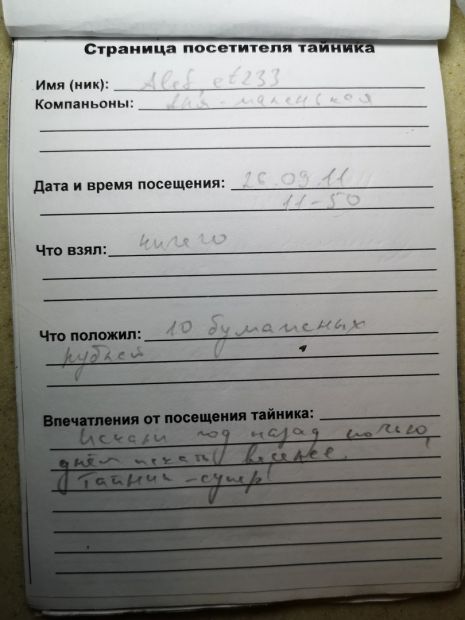 Страница посетителя тайника
Имя (ник): Alef, et233
Компаньоны: Аня-маленькая
Дата и время посещения: 26.09.11
11-50
Что взял: ничего
Что положил: 10 бумажных
рублей
Впечатления от посещения тайника:
Искали год назад ночью,
днём искать веселее.
Тайник-супер